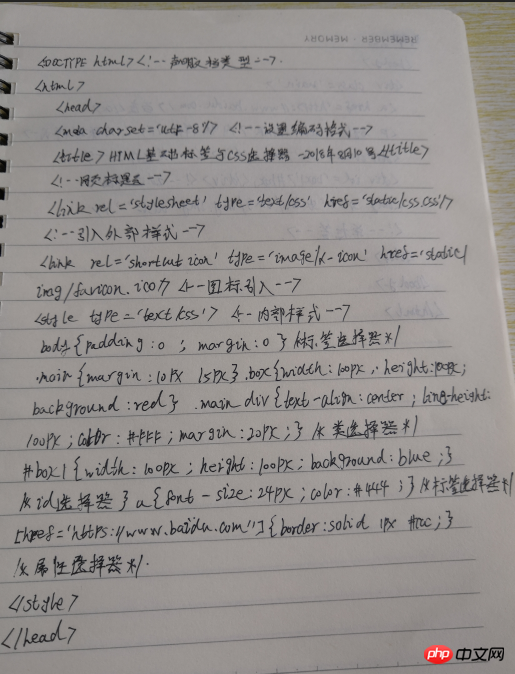 REMEMBER · MEMORY
<DOCTYPE html><!--声明文档类型-->
<html>
<head>
<meta charset='utf-8'/> <!--设置编码格式-->
<title>HTML基础标签与CSS选择器-2018年8月10号</title>
<!--网页标题-->
<link rel='stylesheet' type='text/css' href='static/css.css'/>
<!--引入外部样式-->
<link rel='shortcut icon' type='image/x-icon' href='static/
img/favicon.ico'/> <--图标引入-->
<style type='text/css'> <--内部样式-->
body{padding:0; margin:0} /*标签选择器*/
.main{margin:10px 15px} .box{width:100px; height:100px;
background:red} .main div{text-align:center; line-height:
100px; color:#FFF; margin:20px;} /*类选择器*/
#box1{width:100px; height:100px; background:blue;}
/*id选择器} a{font-size:24px; color:#444;} /*标签选择器*/
[href='https://www.baidu.com"]{border:solid 1px #ccc;}
/*属性选择器*/.
</style>
</head>
php 中文网